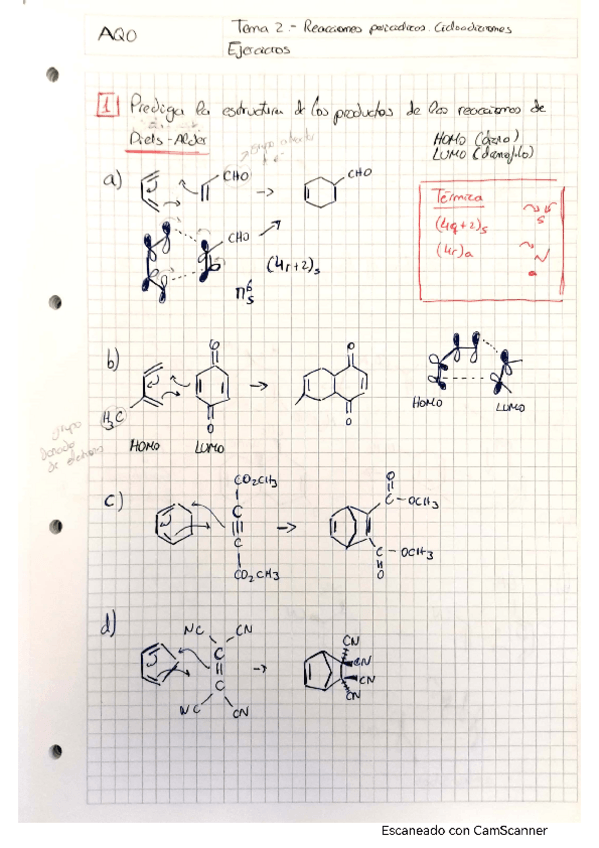 AQO
Tema 2.- Reacciones pericíclicas. Cicloadiciones
Ejercicios
1 Prediga la estructura de los productos de las reacciones de
Diels-Alder
HOMO (dieno)
LUMO (dienófilo)
a)
CHO
CHO
CHO
(4r+2)s
π6s
Térmica
(4q+2)s
s
(4r)a
a
b)
O
O
H3C
HOMO
LUMO
O
O
HOMO
LUMO
grupo
donador
de electrones
c)
CO2CH3
C
C
CO2CH3
O
C-OCH3
C-OCH3
O
d)
NC
CN
C
C
NC
CN
CN
CN
CN
CN
Escaneado con CamScanner